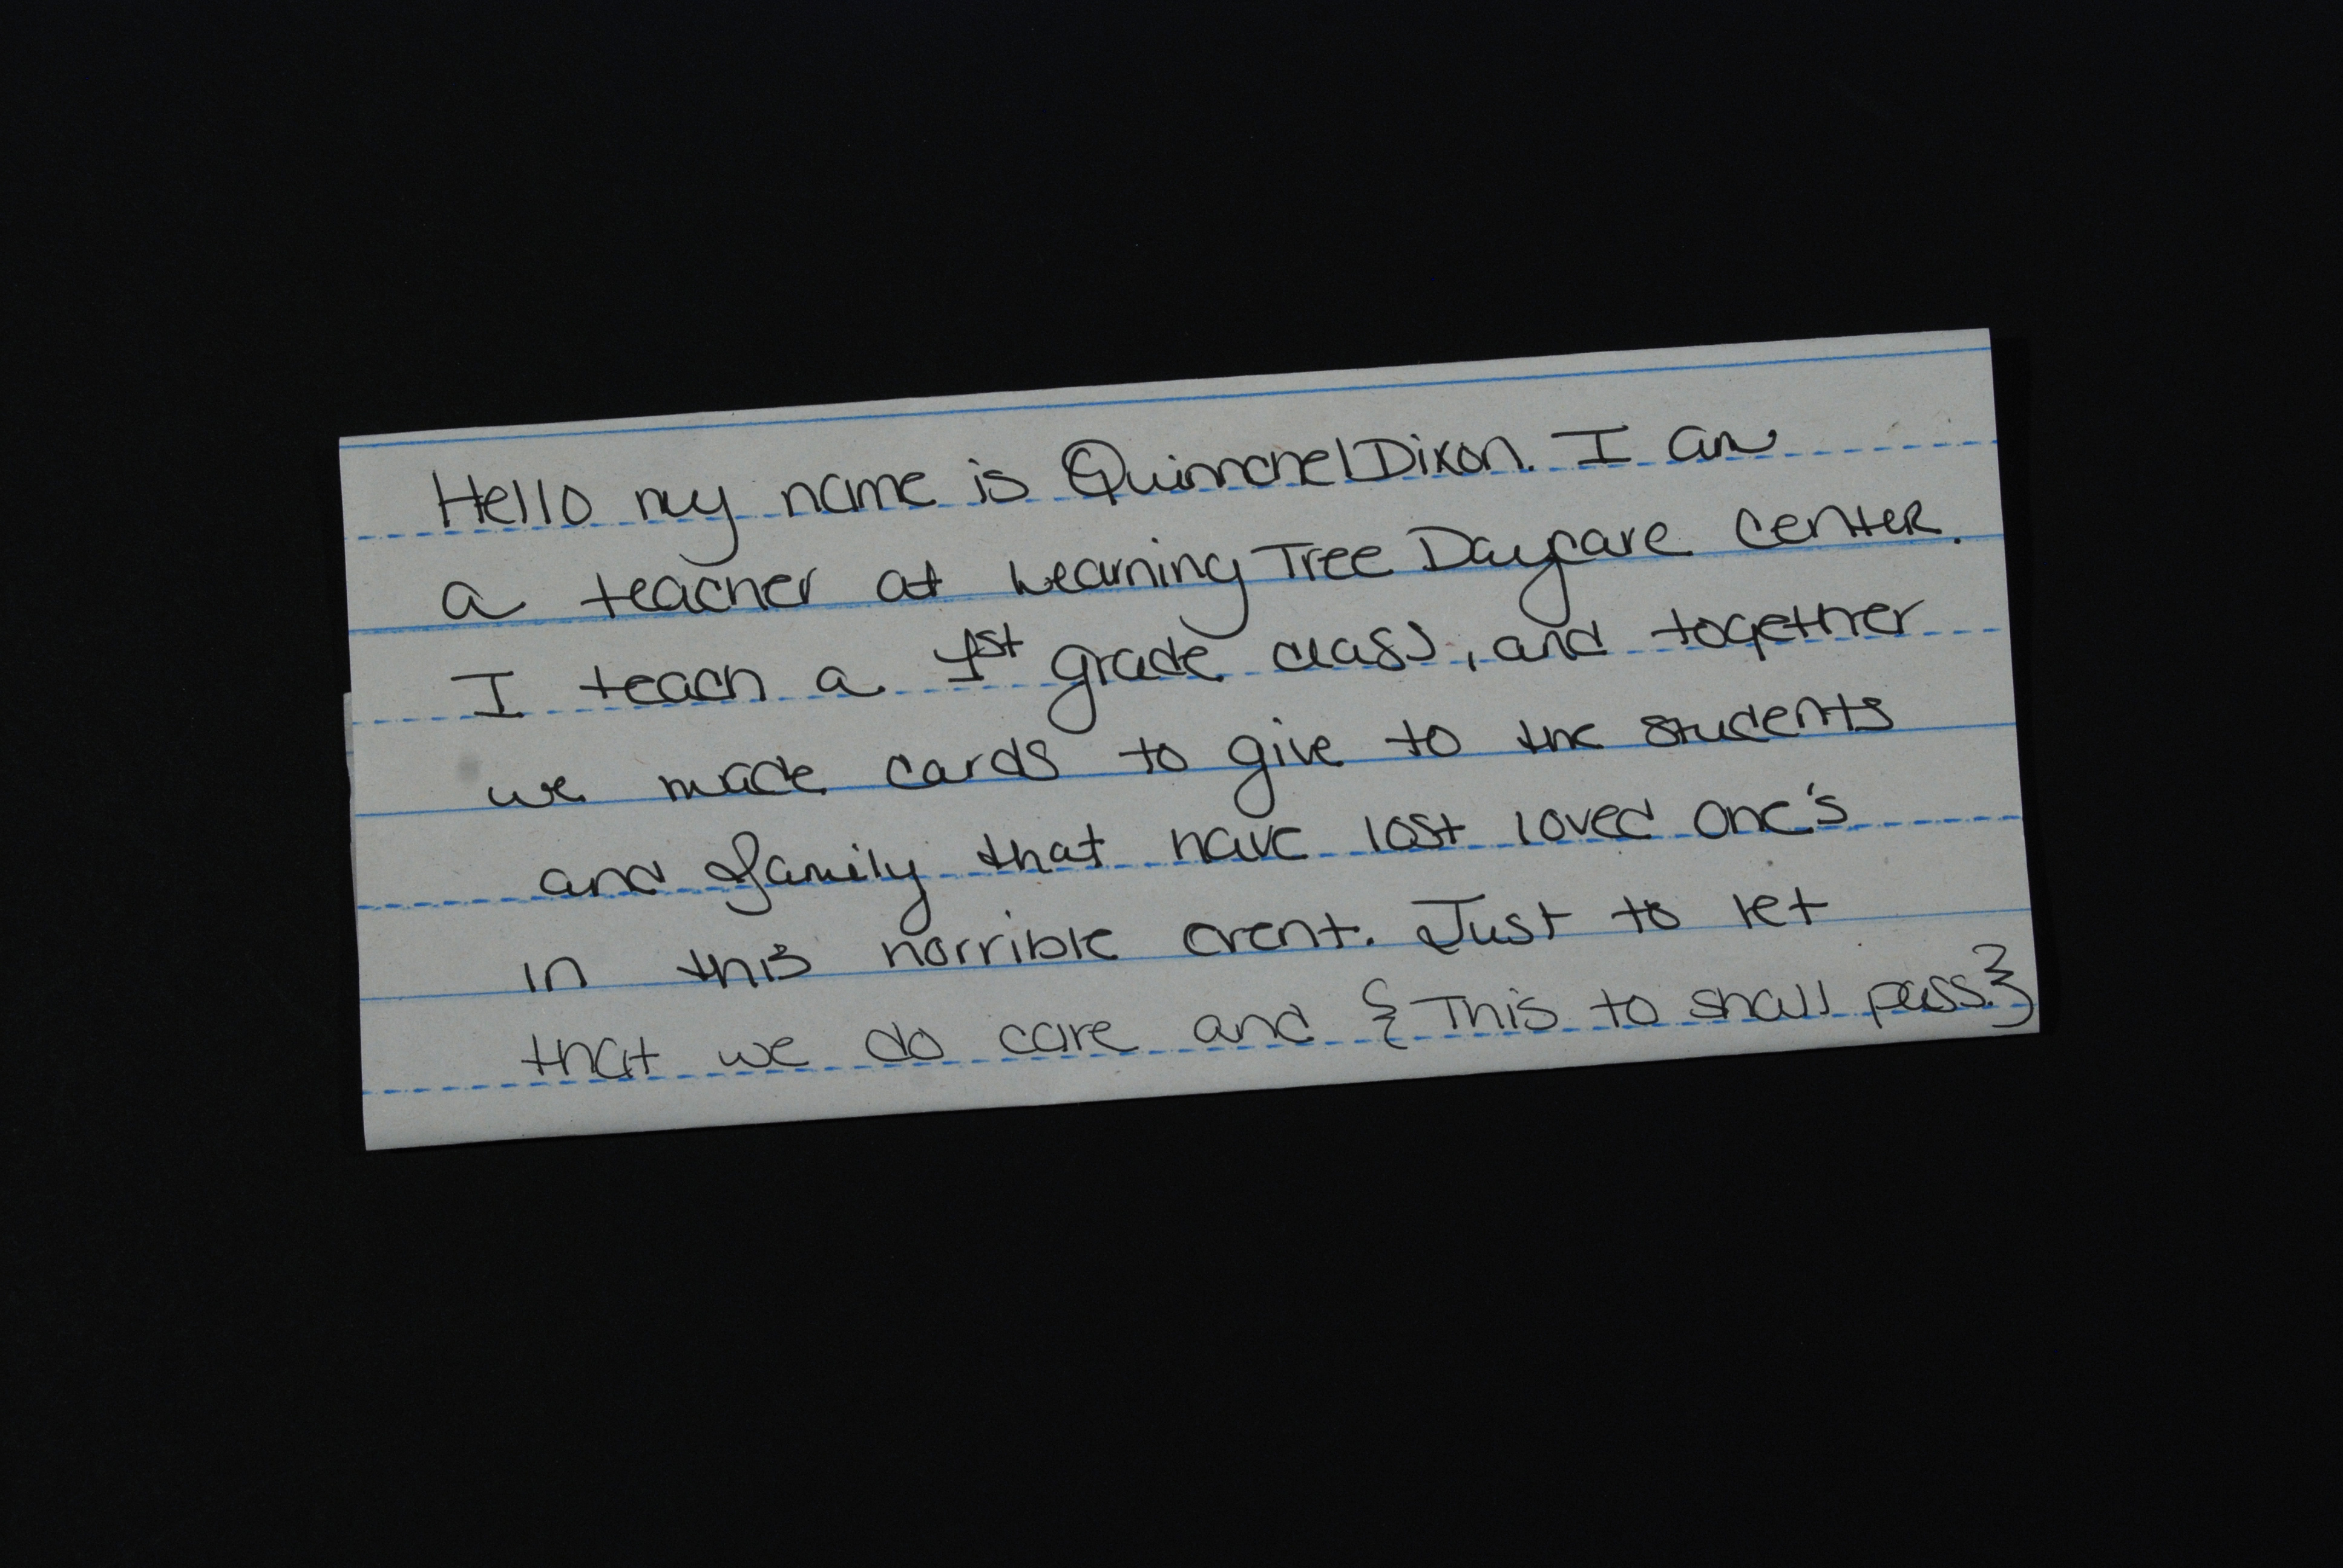 Hello my name is Quinnchel Dixon. I am
a teacher at Learning Tree Daycare Center.
I teach a 1st grade class, and together
we made cards to give to the students
and family that have lost loved one's
in this horrible event. Just to let
that we do care and {This to shall pass.}